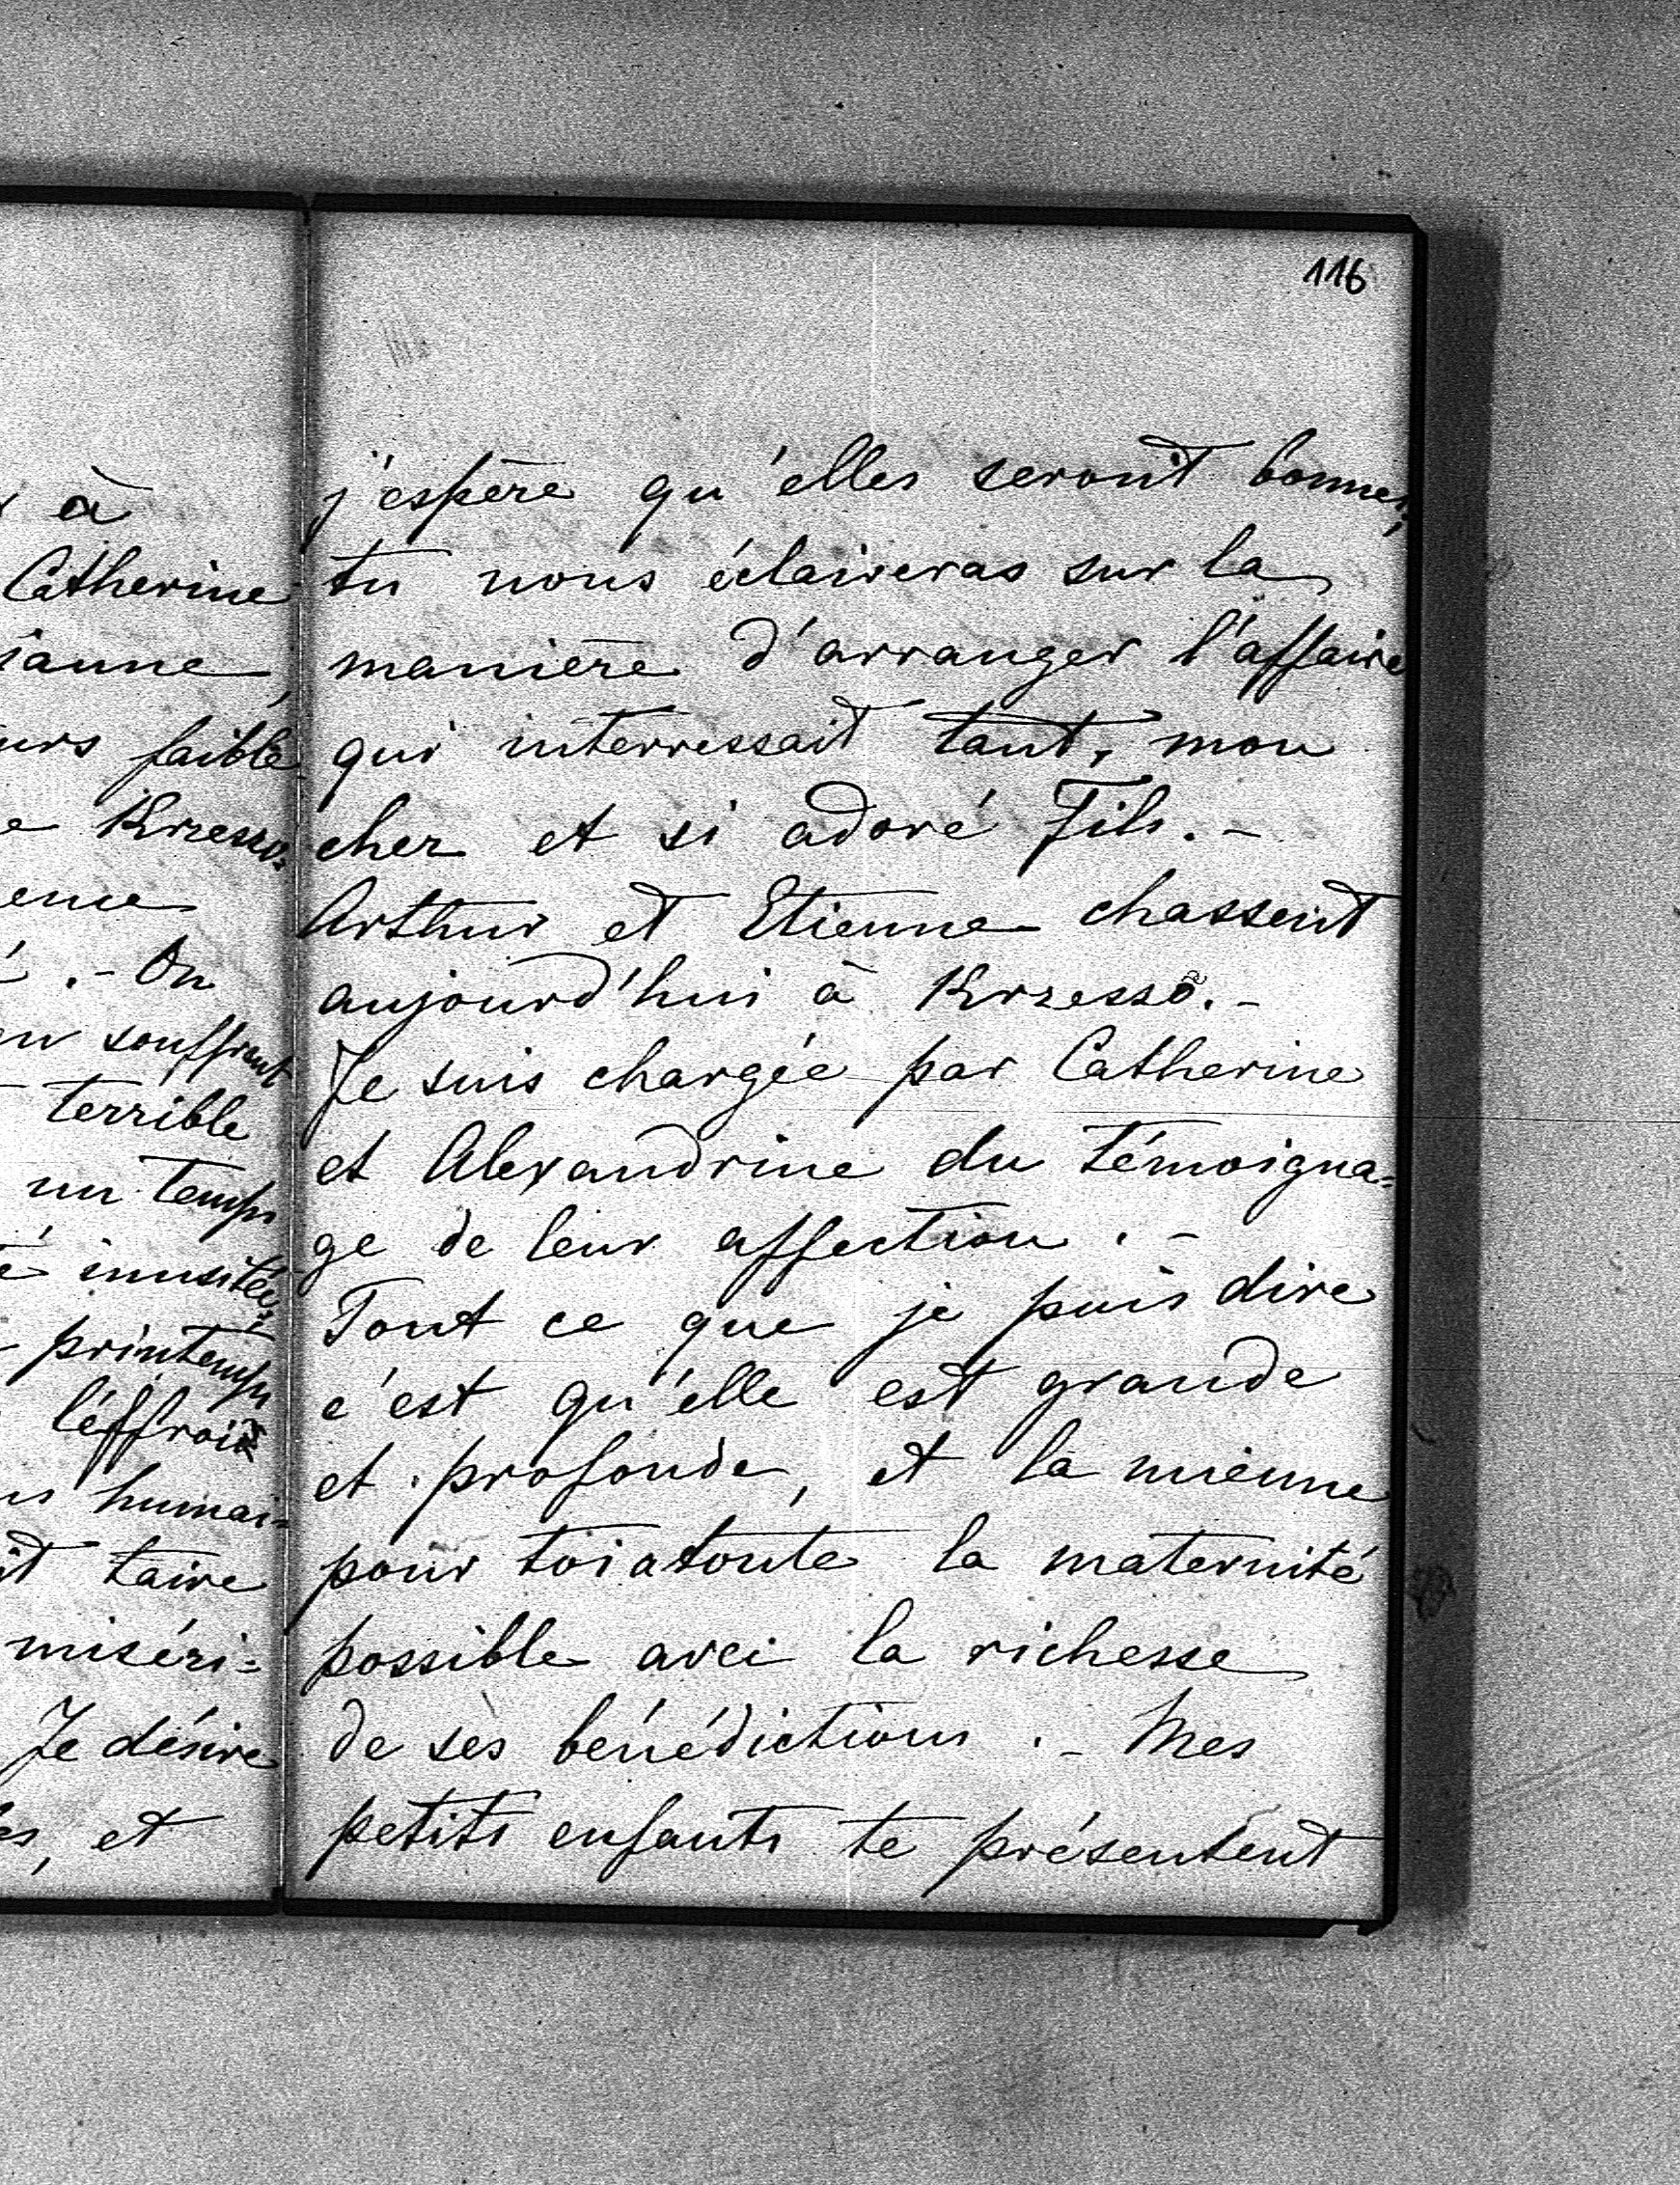 à
Catherine
ianne,
urs faible
e Krzesso=
ence
. - On
en souffrant
terrible
un temps
é inusitée
printemps
l'éffroi
humai=
it taire
miséri=
Je désire
es, et
116
j'éspère qu'élles seront bonnes;
tu nous éclaireras sur la
manière d'arranger l'affaire
qui interressait tant, mon
cher et si adoré Fils. -
Arthur et Etienne chassent
aujourd'hui à Krzesso. -
Je suis chargée par Catherine
et Alexandrine du témoigna=
ge de leur affection. -
Tout ce que je puis dire
c'est qu'élle est grande
et profonde, et la mienne
pour toi a toute la maternité
possible avec la richesse
de sès bénédictions. - Mes
petits enfants te présentent